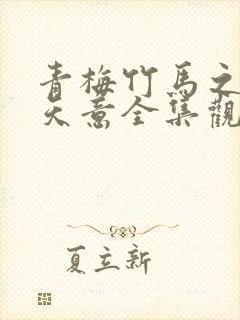 青梅竹馬之
天意全集觀
夏立新